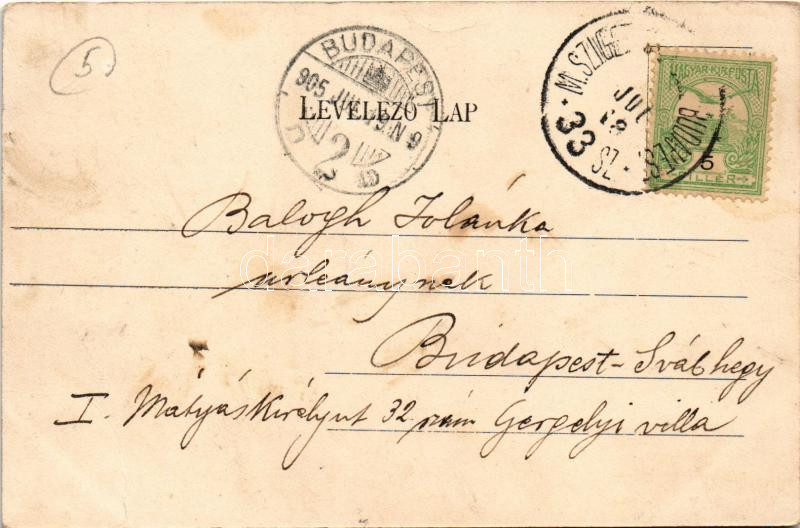 5
BUDAPEST
905 JUL 19 N 9
2
D
M. SZIGET
JUL
18
33
SZ.
BUDAPEST
MAGYAR KIR. POSTA
5
FILLÉR
LEVELEZŐ LAP
Balogh Jolánka
urleánynek
Budapest-Svábhegy
I. Mátyáskirályut 32 szám Gergelyi villa
darabanth